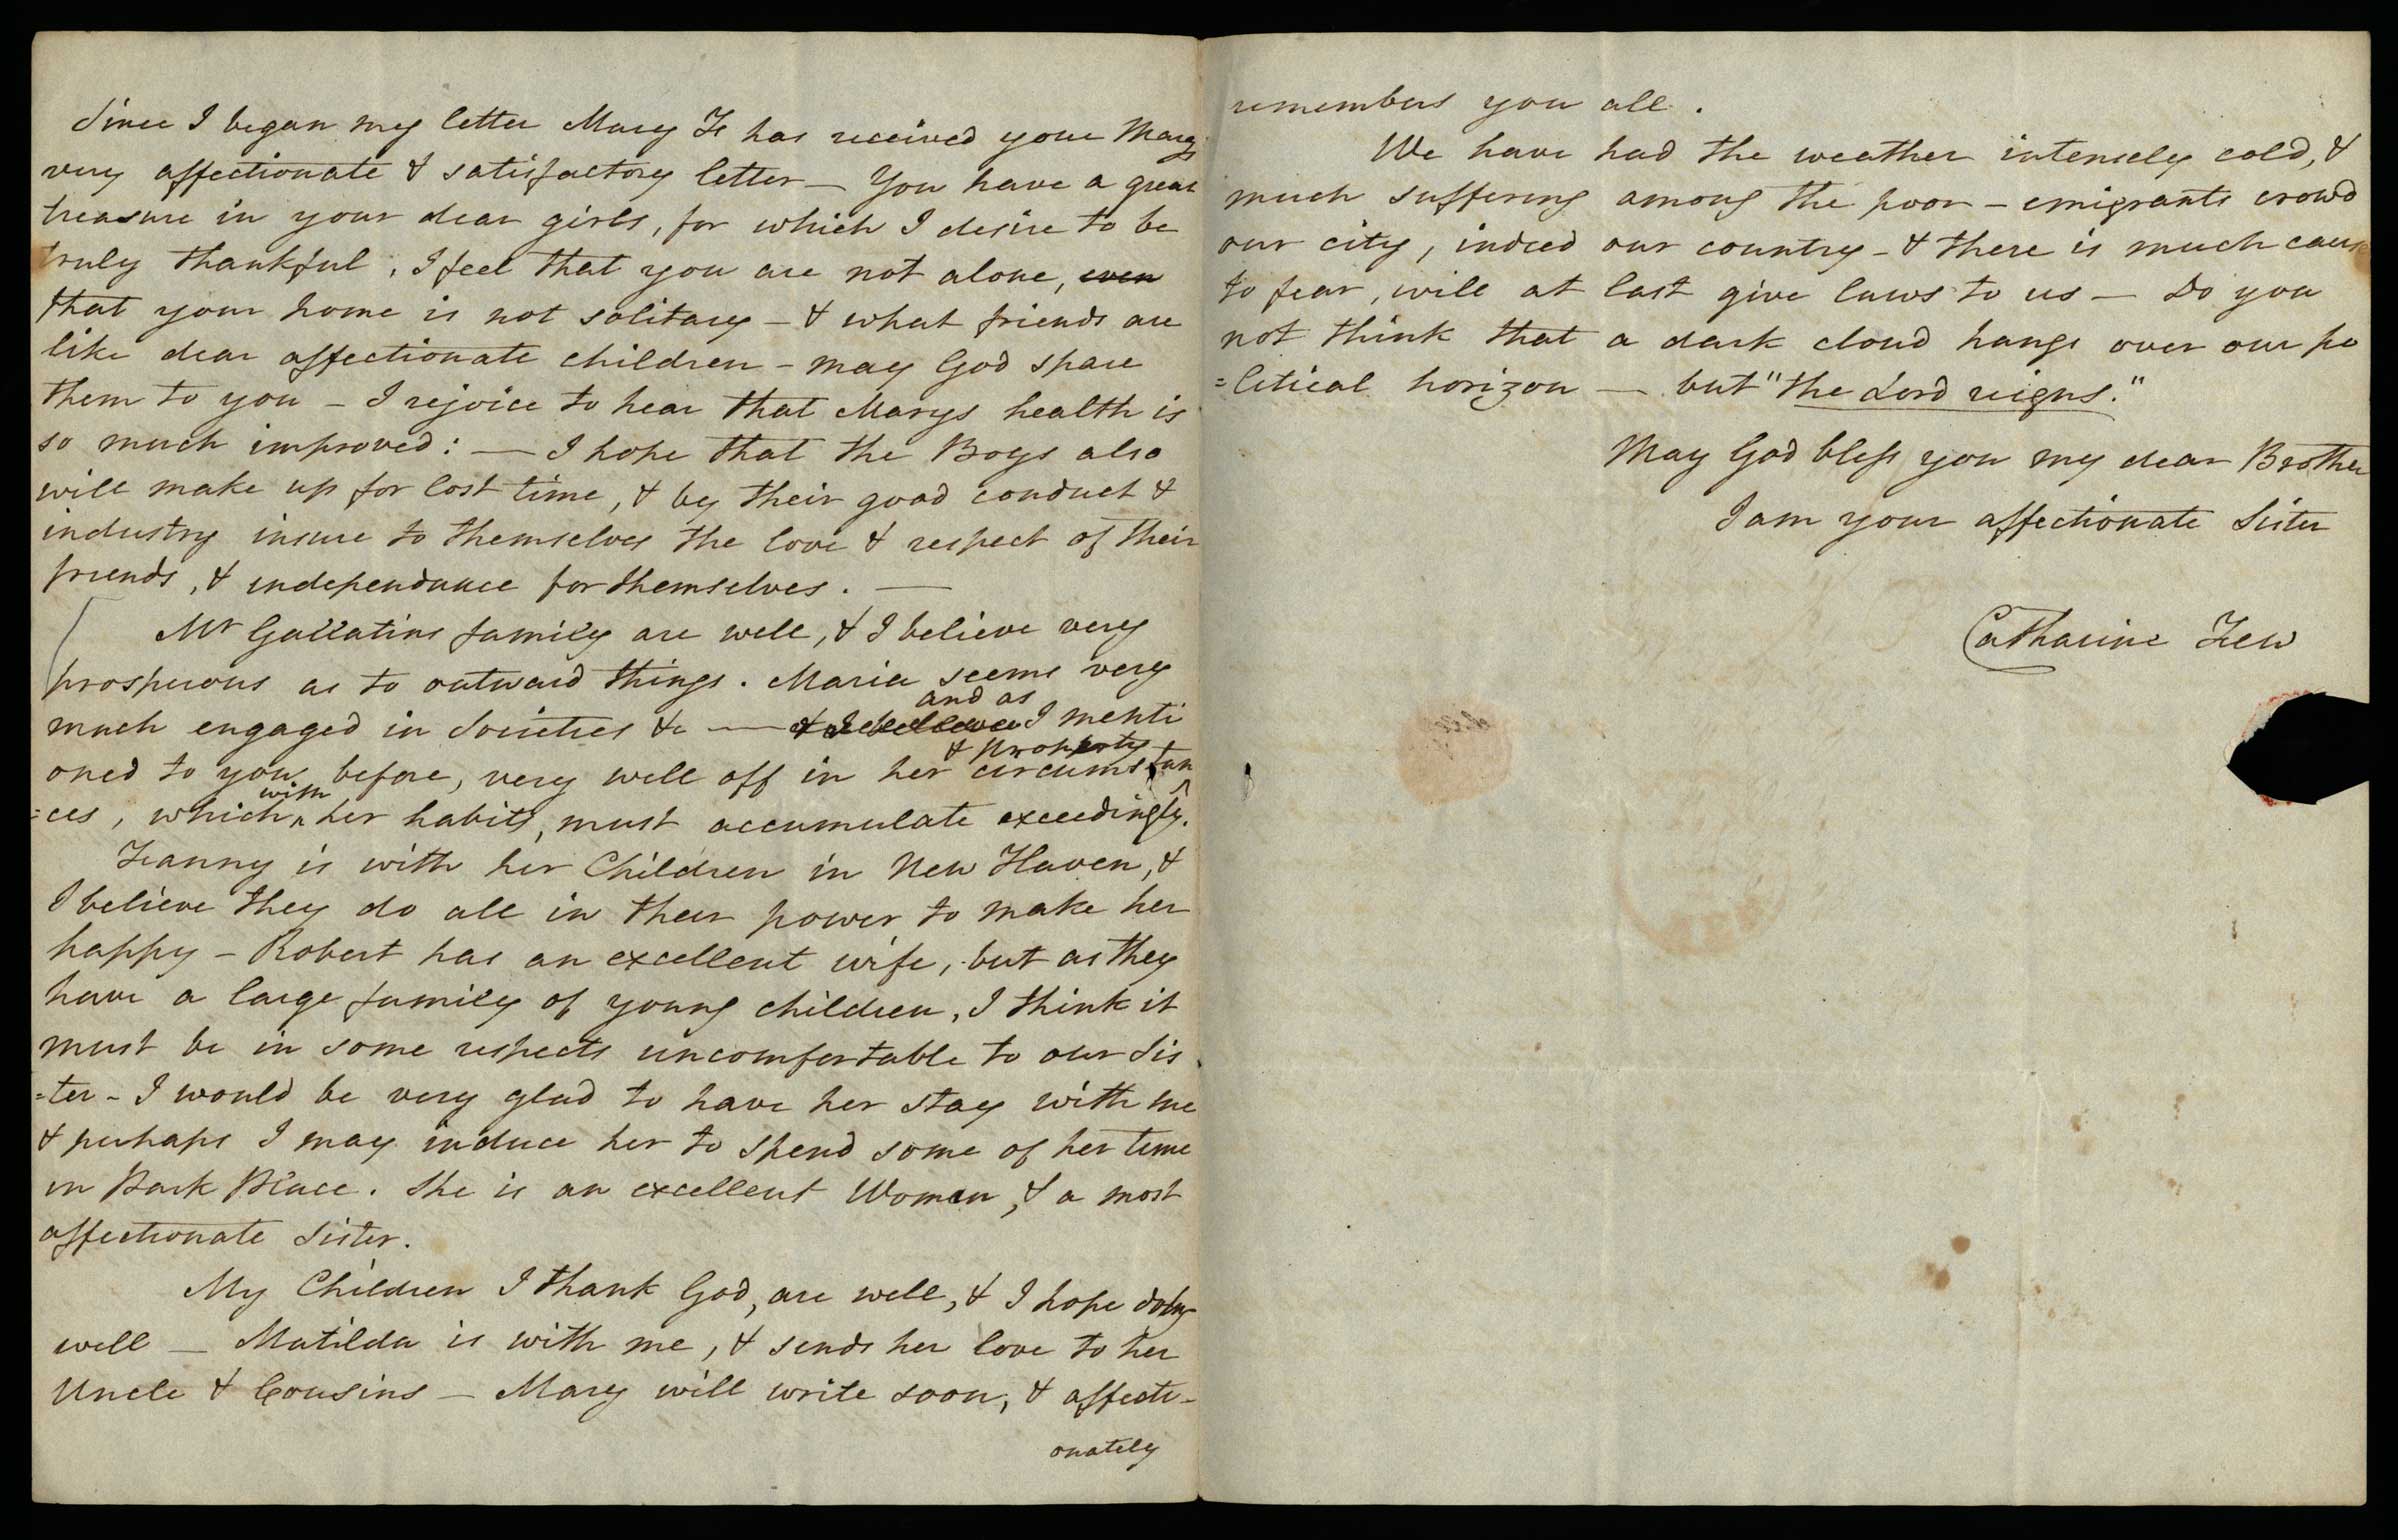 Since I began my letter Mary F. has received your Marys
very affectionate & satisfactory letter — You have a great
treasure in your dear girls, for which I desire to be
truly thankful, I feel that you are not alone, even
that your home is not solitary — & what friends are
like dear affectionate children — may God spare
them to you — I rejoice to hear that Marys health is
so much improved: — I hope that the Boys also
will make up for lost time, & by their good conduct &
industry insure to themselves the love & respect of their
friends, & independance for themselves. —
Mr Gallatins family are well, & I believe very
prosperous as to outward things. Maria seems very
and as
much engaged in Societies &c — & I believe I menti
& property
oned to you before, very well off in her circumstan
with
=ces, which ^ her habits, must accumulate exceedingly.
Fanny is with her Children in New Haven, &
I believe they do all in their power to make her
happy — Robert has an excellent wife, but as they
have a large family of young children, I think it
must be in some respects uncomfortable to our Sis
=ter — I would be very glad to have her stay with me
& perhaps I may induce her to spend some of her time
in Park Place. She is an excellent Woman, & a most
affectionate Sister.
My Children I thank God, are well, & I hope doing
well — Matilda is with me, & sends her love to her
Uncle & Cousins — Mary will write soon, & affecti-
onately
remembers you all.
We have had the weather intensely cold, &
much suffering among the poor — emigrants crowd
our city, indeed our country — & there is much cause
to fear, will at last give laws to us — Do you
not think that a dark cloud hangs over our po
=litical horizon — but "the Lord reigns."
May God bless you my dear Brother
I am your affectionate Sister
Catharine Few